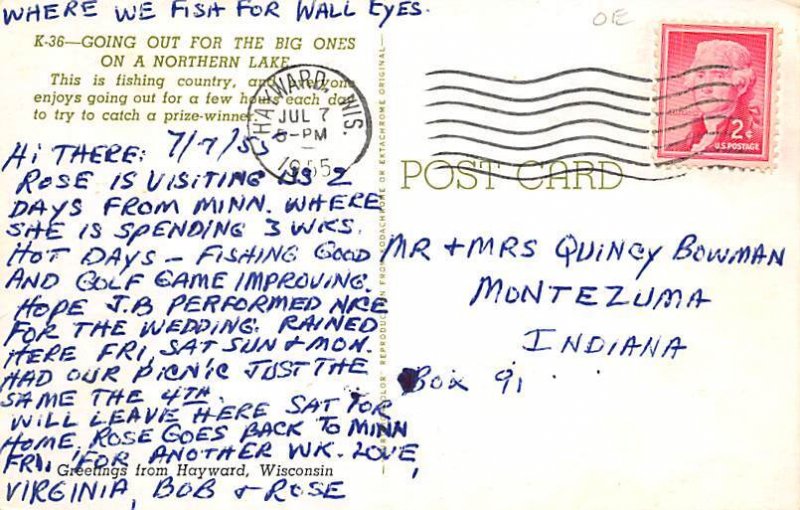 WHERE WE FISH FOR WALL EYES.
K-36—GOING OUT FOR THE BIG ONES
ON A NORTHERN LAKE
This is fishing country, and everyone
enjoys going out for a few hours each day
to try to catch a prize-winner.
HAYWARD, WIS.
JUL 7
5-PM
1955
OE
2¢
U.S. POSTAGE
POST CARD
HI THERE: 7/7/55
ROSE IS VISITING US 2
DAYS FROM MINN. WHERE
SHE IS SPENDING 3 WKS.
HOT DAYS – FISHING GOOD
AND GOLF GAME IMPROVING.
HOPE J.B PERFORMED NICE
FOR THE WEDDING. RAINED
HERE FRI, SAT SUN + MON.
HAD OUR PICNIC JUST THE
SAME THE 4TH.
WILL LEAVE HERE SAT FOR
HOME, ROSE GOES BACK TO MINN
FRI. FOR ANOTHER WK. LOVE,
VIRGINIA, BOB + ROSE
Greetings from Hayward, Wisconsin
REPRODUCTION FROM KODACHROME OR EKTACHROME ORIGINAL
MR + MRS QUINCY BOWMAN
MONTEZUMA
INDIANA
BOX 91